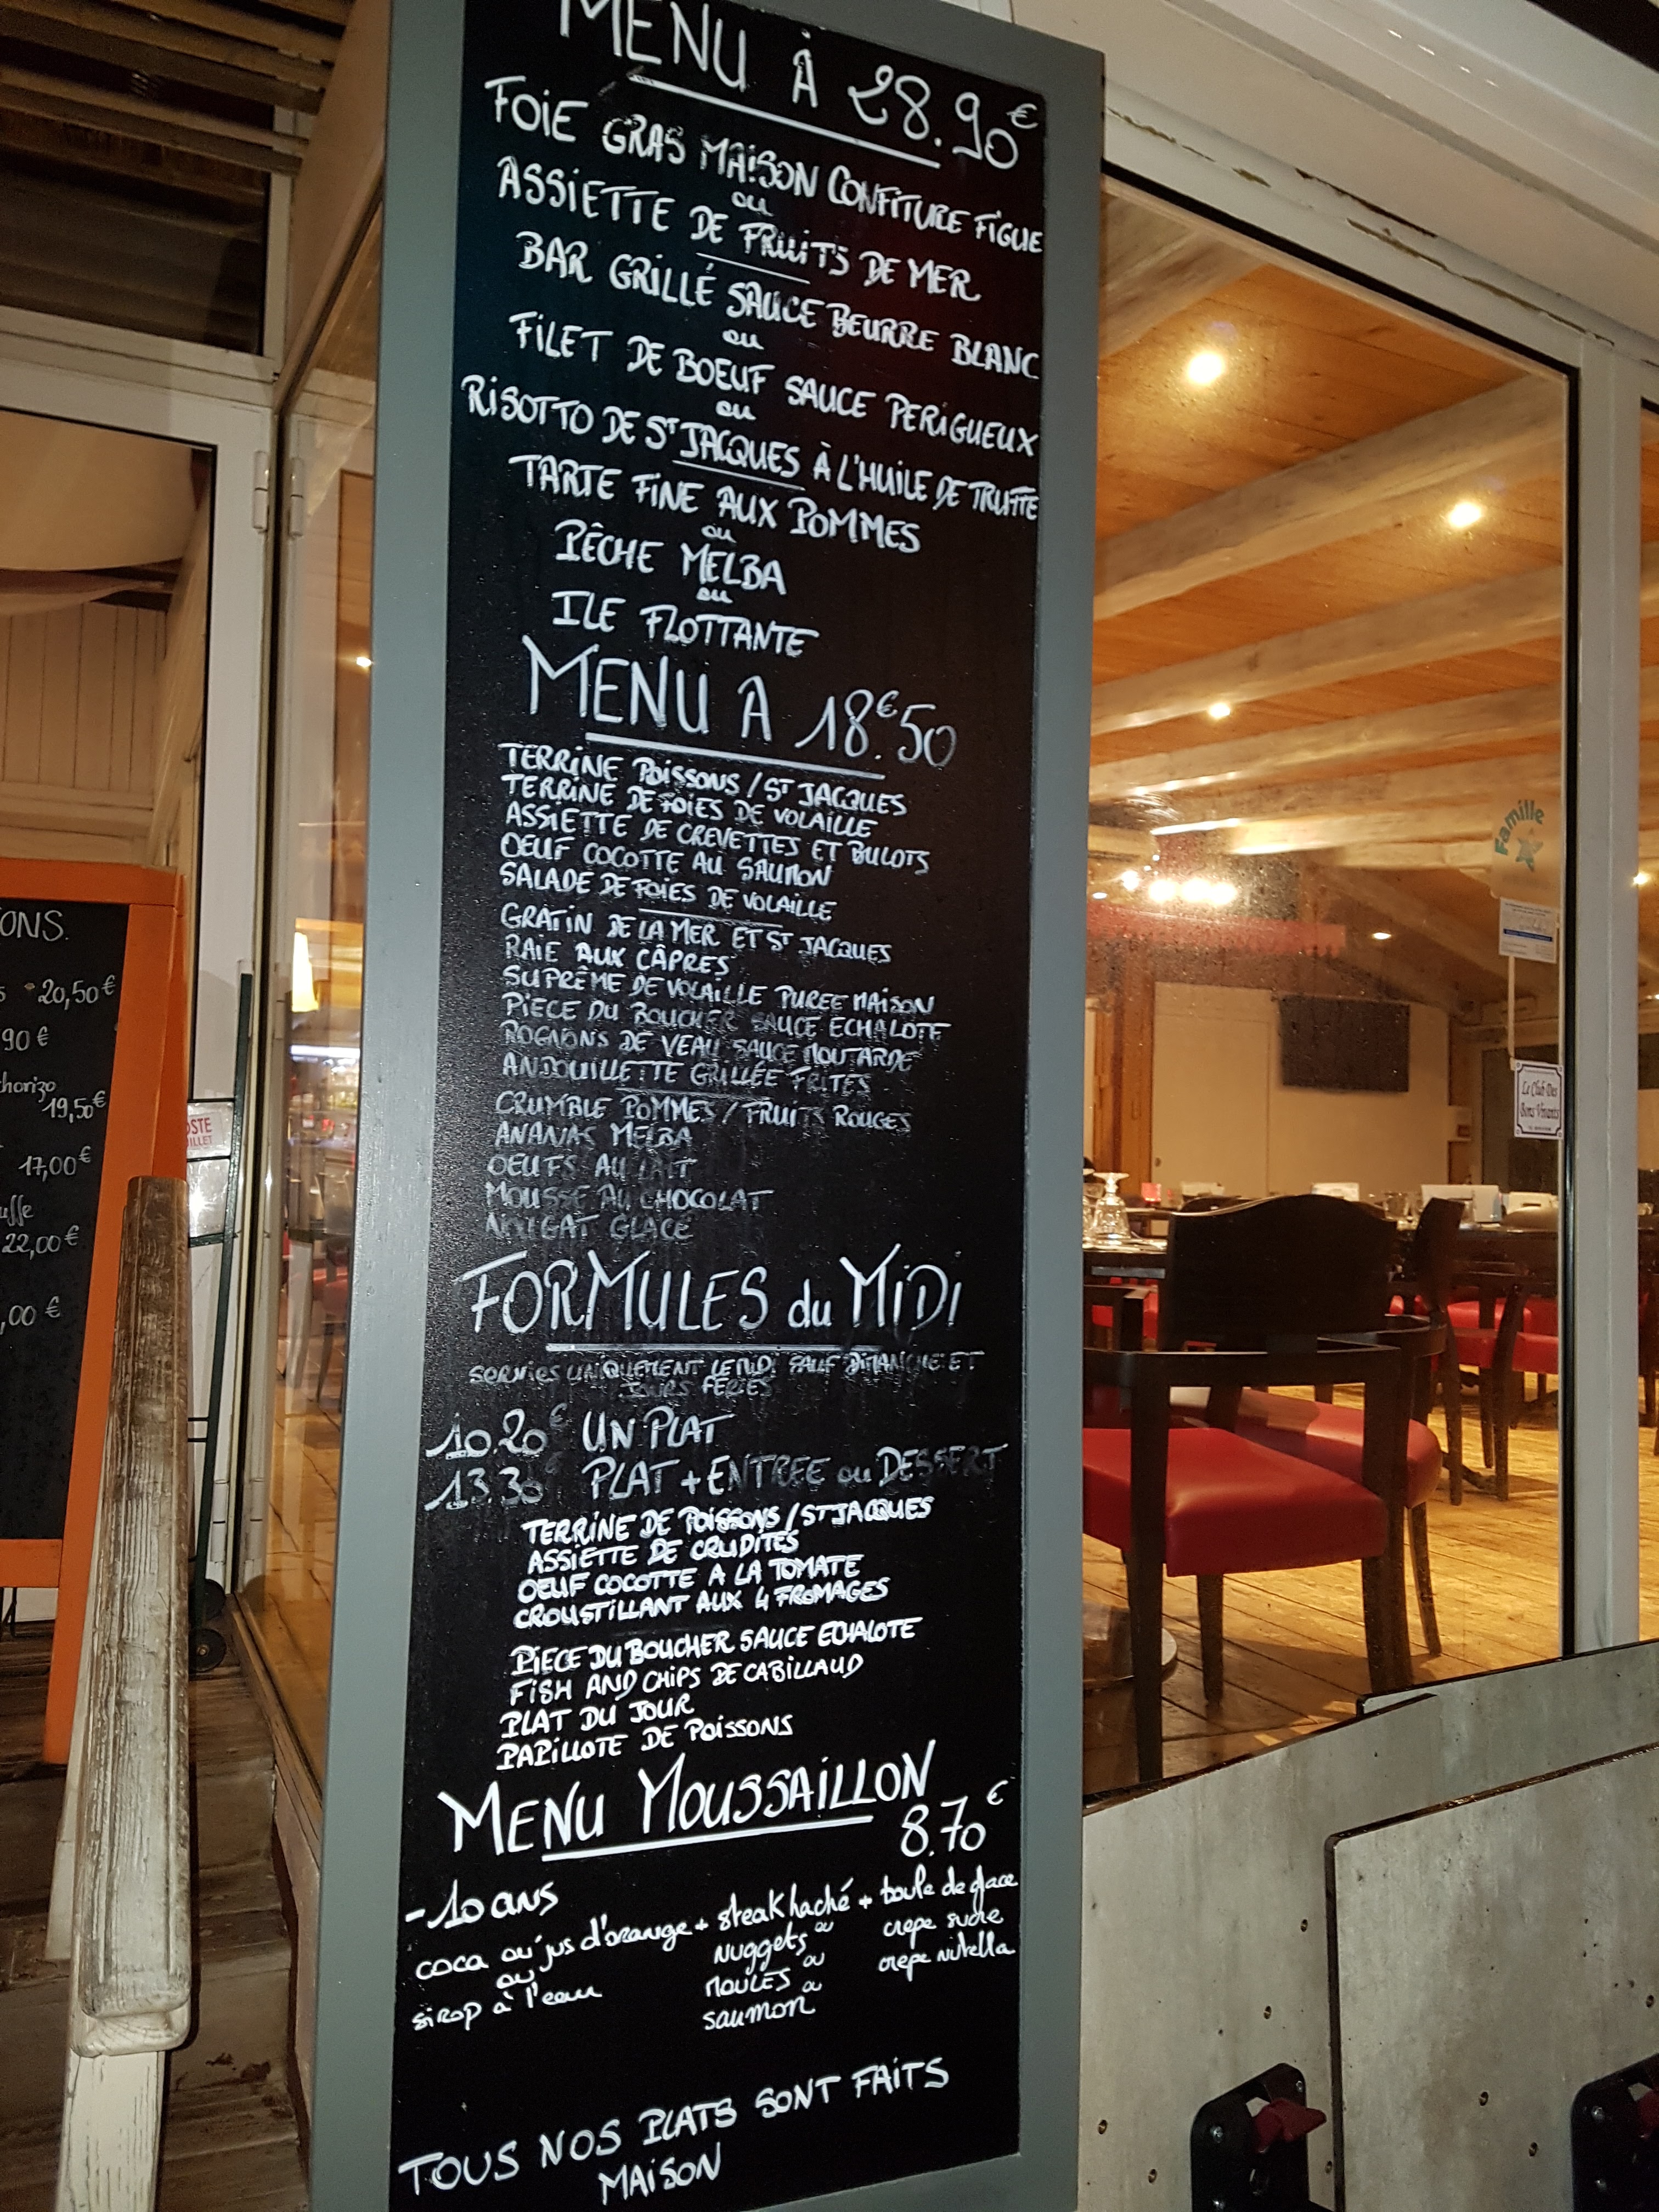 MENU À 28.90€
FOIE GRAS MAISON CONFITURE FIGUE
ou
ASSIETTE DE FRUITS DE MER
BAR GRILLÉ SAUCE BEURRE BLANC
ou
FILET DE BOEUF SAUCE PERIGUEUX
ou
RISOTTO DE ST JACQUES À L'HUILE DE TRUFFE
TARTE FINE AUX POMMES
ou
PÊCHE MELBA
ou
ILE FLOTTANTE
MENU A 18€.50
TERRINE POISSONS / ST JACQUES
TERRINE DE FOIES DE VOLAILLE
ASSIETTE DE CREVETTES ET BULOTS
OEUF COCOTTE AU SAUMON
SALADE DE FOIES DE VOLAILLE
GRATIN DE LA MER ET ST JACQUES
RAIE AUX CÂPRES
SUPRÊME DE VOLAILLE PUREE MAISON
PIECE DU BOUCHER SAUCE ECHALOTE
ROGNONS DE VEAU SAUCE MOUTARDE
ANDOUILLETTE GRILLÉE FRITES
CRUMBLE POMMES / FRUITS ROUGES
ANANAS MELBA
OEUFS AU LAIT
MOUSSE AU CHOCOLAT
NOUGAT GLACE
FORMULES du MIDI
SERVIES UNIQUEMENT LE MIDI SAUF DIMANCHE ET
JOURS FERIES
10.20€ UN PLAT
13.30€ PLAT + ENTREE ou DESSERT
TERRINE DE POISSONS / ST JACQUES
ASSIETTE DE CRUDITÉS
OEUF COCOTTE A LA TOMATE
CROUSTILLANT AUX 4 FROMAGES
PIECE DU BOUCHER SAUCE ECHALOTE
FISH AND CHIPS DE CABILLAUD
PLAT DU JOUR
PAPILLOTE DE POISSONS
MENU MOUSSAILLON
8.70€
-10 ans
coca ou jus d'orange + steak haché + boule de glace
ou
sirop à l'eau
ou
nuggets
crepe sucre
ou
MOULES
crepe nutella
ou
saumon
TOUS NOS PLATS SONT FAITS
MAISON
ONS.
20,50€
90€
chorizo
19,50€
17,00€
22,00€
,00€
Famille
Le Club Des
Bons Vivants